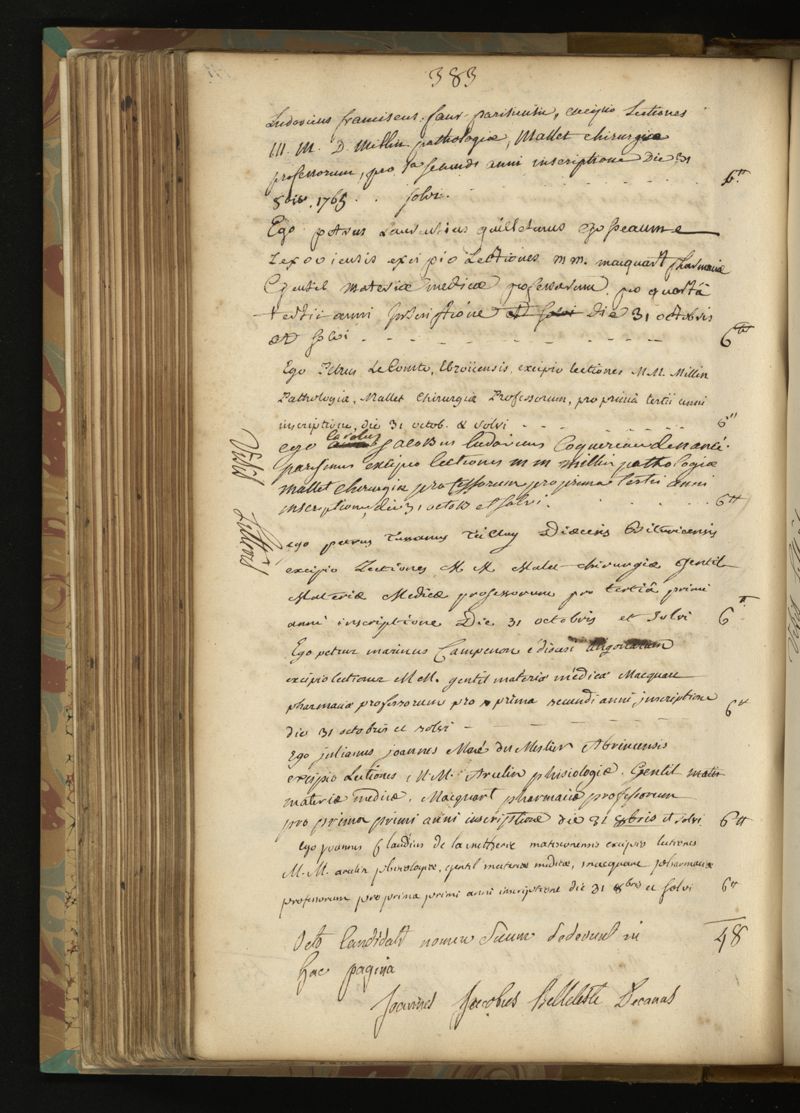 383
Ludovicus franciscus faur parisinus, excipio Lectiones
Ill. M. D. Millin pathologiæ, Mallet chirurgiæ
professorum, pro 1a secundi anni inscriptione Die 31
8bis. 1765. solvi. 6tt
Ego petrus Laurentius guilletmus
Lexoviensis excipio Lectiones m m. macquart pharmaciæ
Gentil materiæ medicæ professorum pro quartâ
tertii anni inscriptione et solvi Die 31 octobris
et solvi 6tt
Ego Petrus LeComte, Ebroïcensis, excipio lectiones M.M. Millin
Pathologiæ, Mallet Chirurgiæ Professorum, pro primâ tertii anni
inscriptione, die 31 octob. & solvi 6tt
ego carolus jacobus ludovicus Coquereau
parisinus excipio lectiones m m millin pathologiæ
mallet chirurgiæ professorum pro prima tertii anni
inscriptione, die 31 octob et solvi. 6tt
Vidit
ego petrus Diœcesis Bituricensis
excipio Lectiones M. M. Malet chirurgiæ Gentil
Materiæ Medicæ professorum pro tertiâ primi
anni inscriptione Die 31 octobris et Solvi 6tt
Ego petrus marinus Campenon è diœcesi
excipio lectiones M.M. gentil materiæ médicæ Macquart
pharmaciæ professorum pro prima secundi anni, inscriptione
die 31 octobris et solvi 6tt
Ego julianus joannes Maré du Mestier Abrincensis
excipio Lectiones M.M. Arcelin phisiologiæ. Gentil
materiæ medicæ. Macquart pharmaciæ professorum
pro prima primi anni inscriptione die 31 8bris et solvi 6tt
ego joannes Claudius de la metherie matisconensis excipio lectiones
M.M. arcelin phisiologiæ, gentil materiæ medicæ, macquart pharmaciæ
professorum pro prima primi anni inscriptione die 31 8bris et solvi 6tt
Octo Candidati nomen suum dederunt in 48
hac pagina
Joannes Jacobus Belleteste Decanus